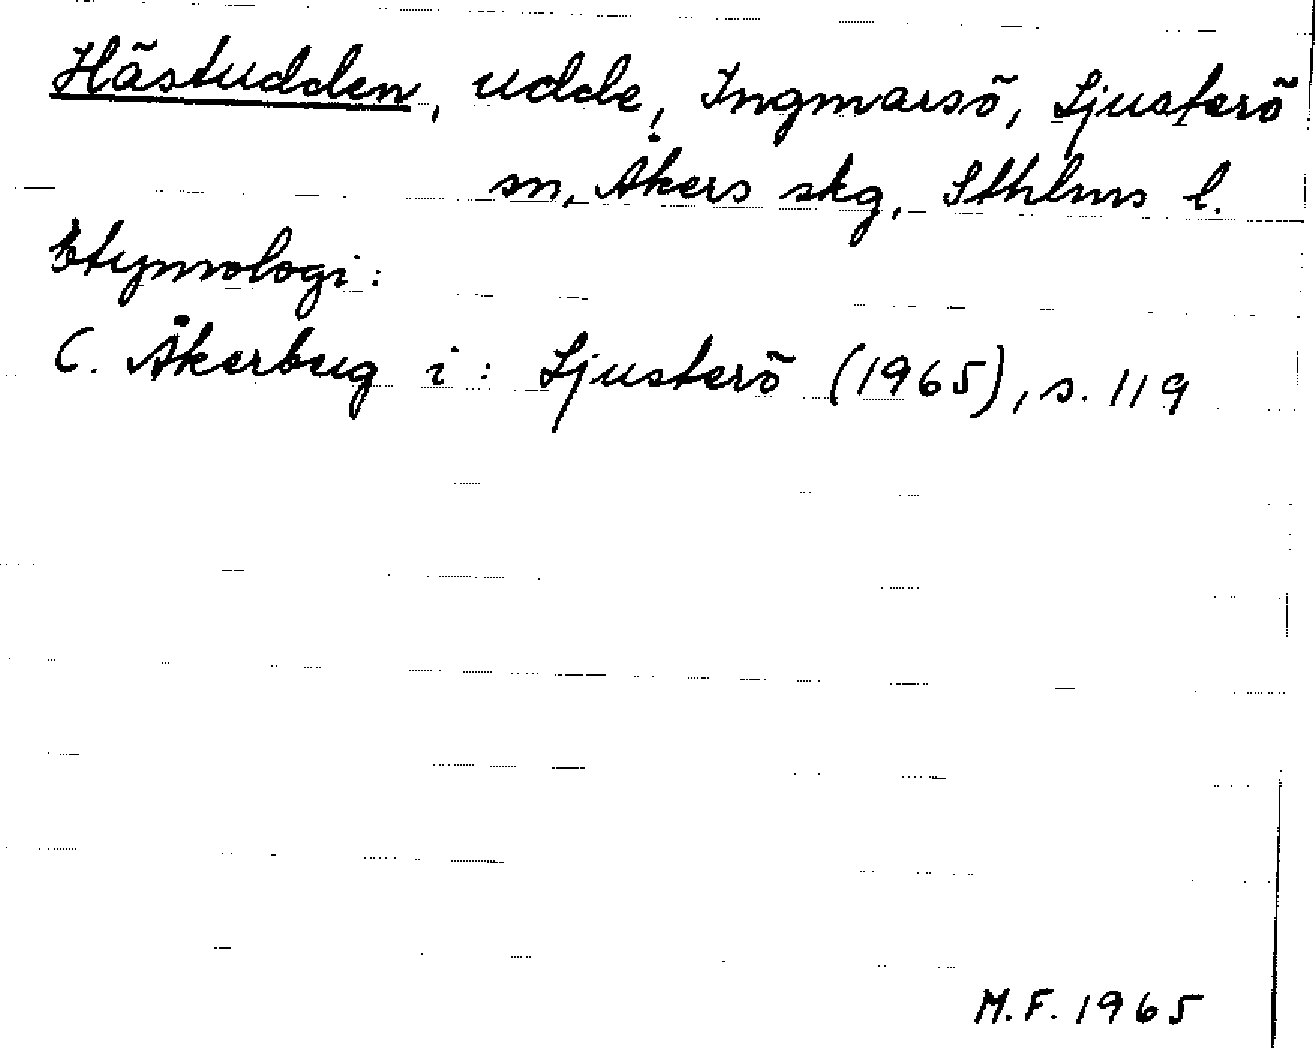 Hästudden, udde, Ingmarsö, Ljusterö
sn, Åkers skg, Sthlms l.
Etymologi:
C. Åkerbug i: Ljusterö (1965), s. 119
M.F. 1965